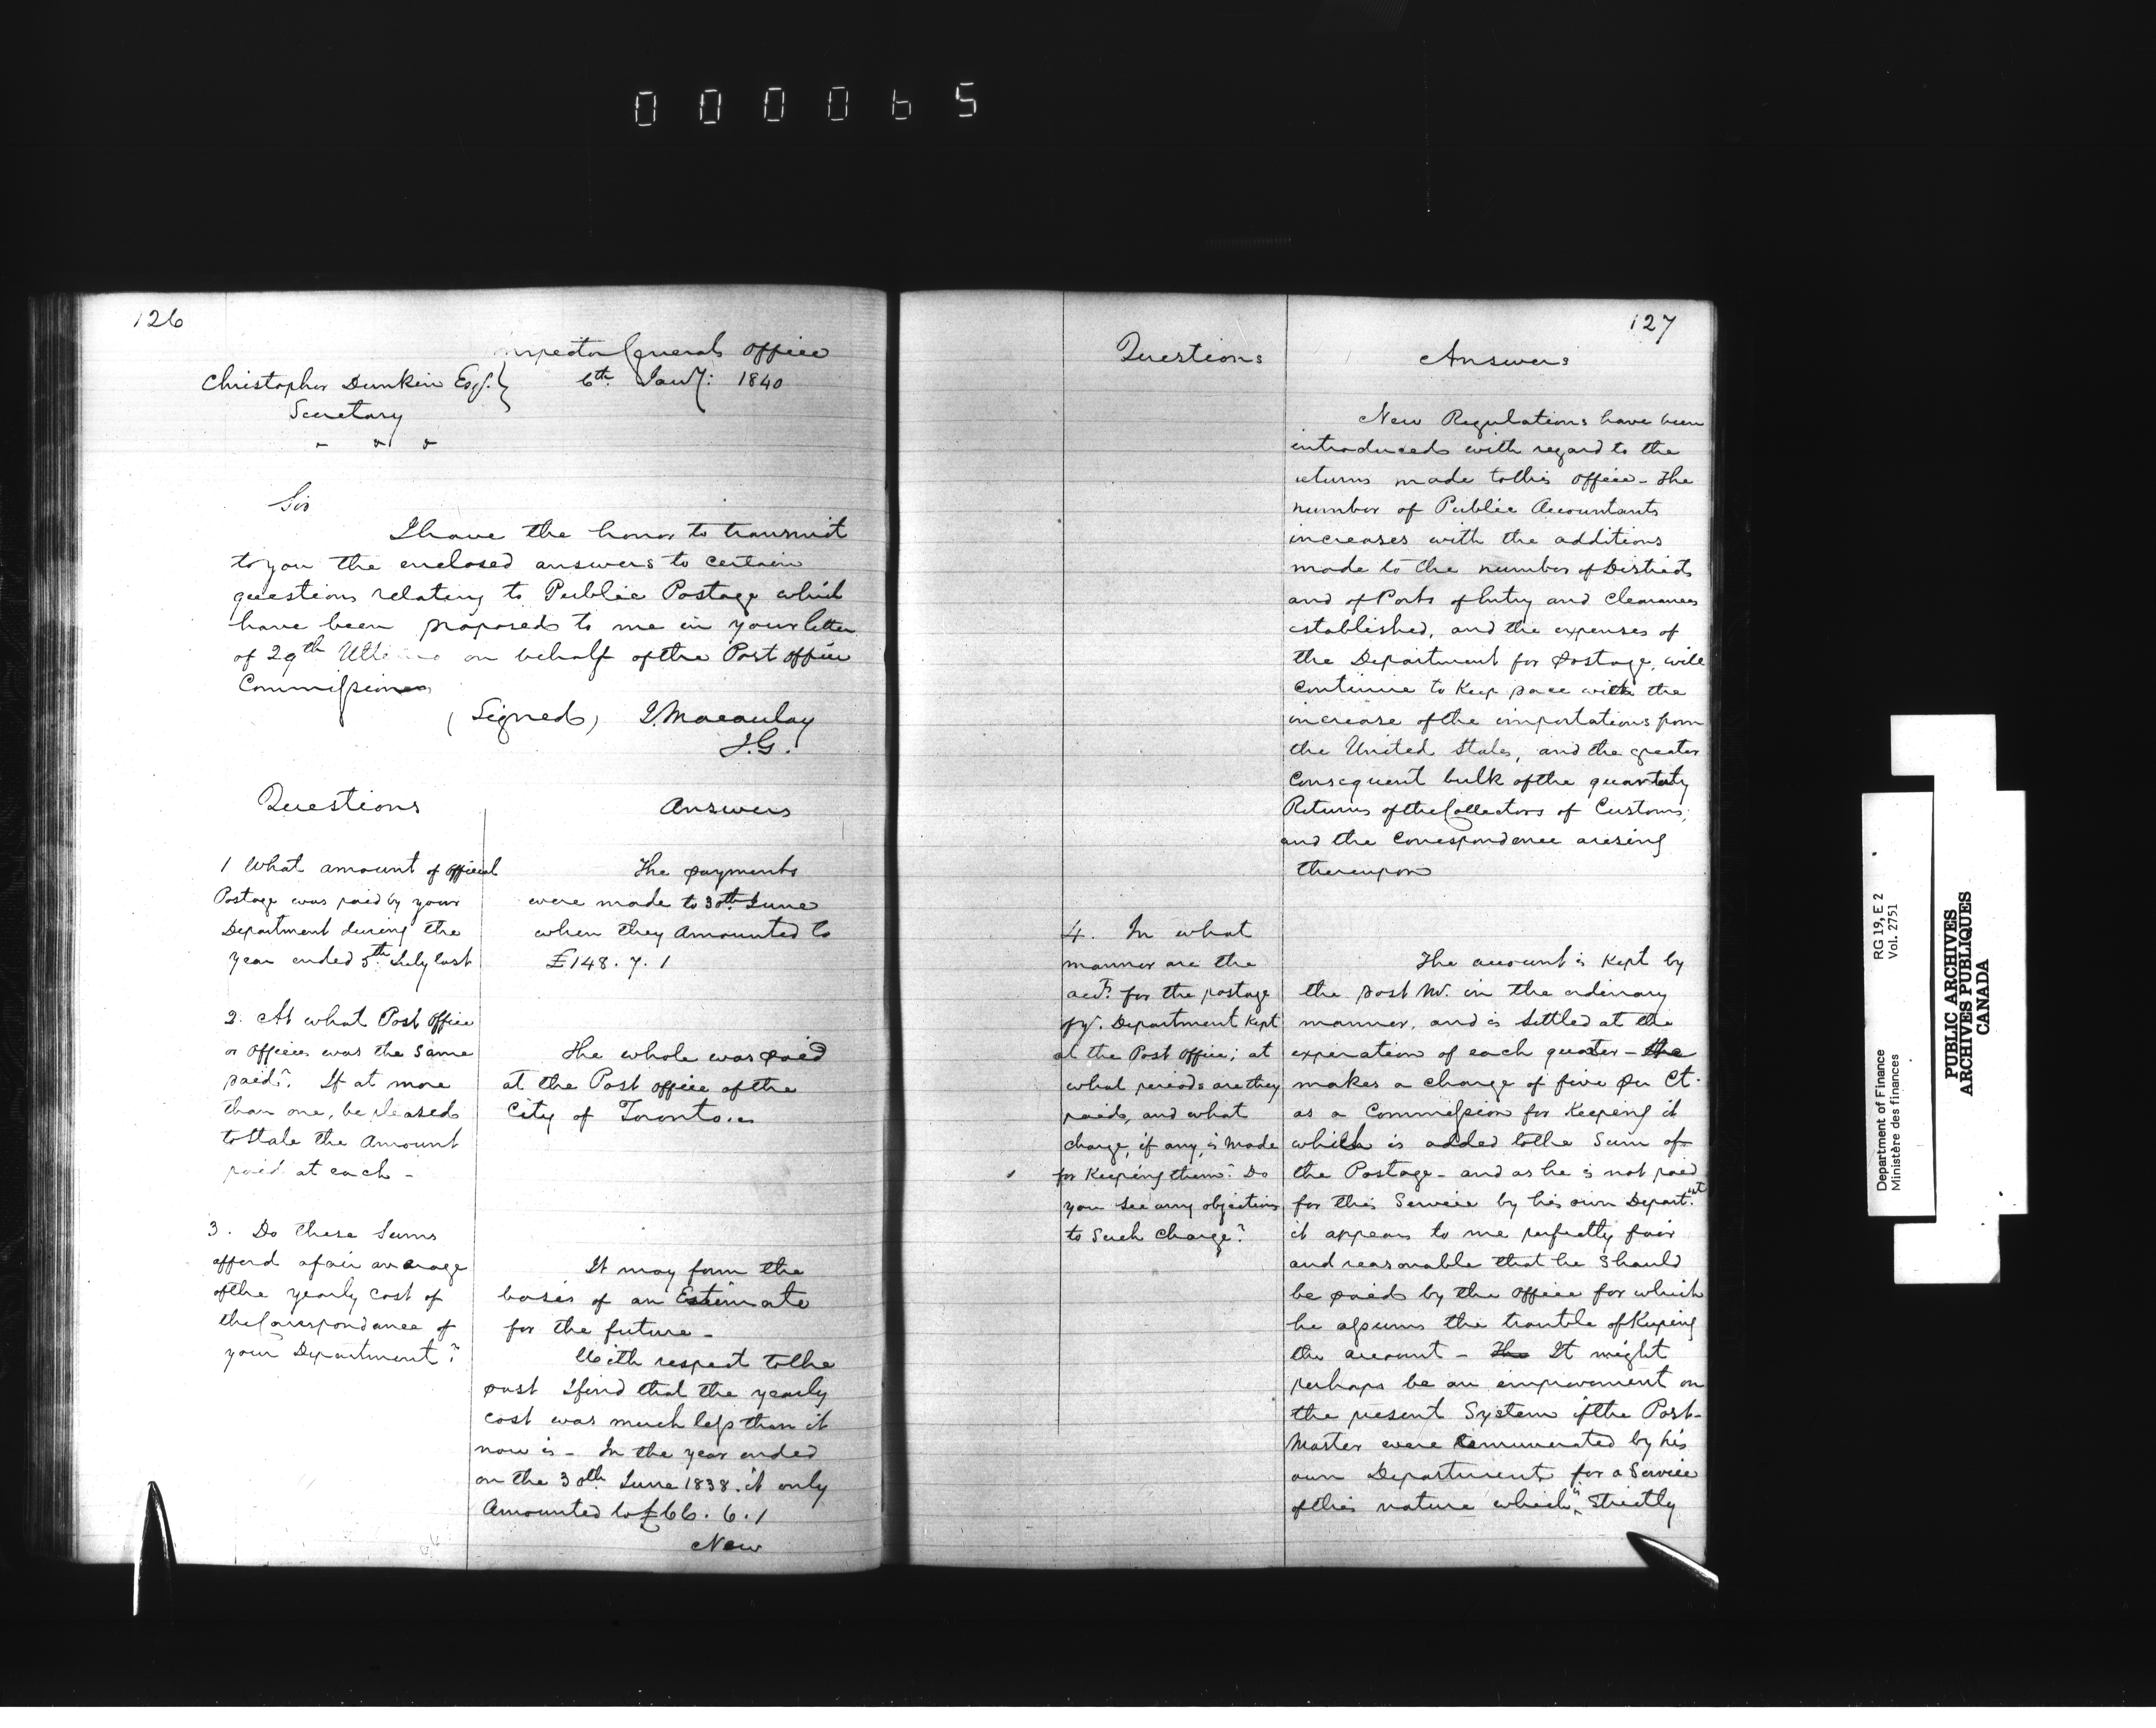 000065
126
Inspector Generals Office
Christopher Dunkin Esqr. } 6th Jany: 1840
Secretary
Sir
I have the honor to transmit
to you the enclosed answers to certain
questions relating to Public Postage which
have been proposed to me in your letter
of 29th Ultimo on behalf of the Post office
Commission
(Signed) J. Macaulay
I.G.
Questions
1 What amount of official
Postage was paid by your
Department during the
year ended 5th July last
2. At what Post Office
or Offices was the same
paid? If at more
than one, be pleased
to State the Amount
paid at each -
3. Do these Sums
afford a fair average
of the yearly cost of
the Correspondence of
your Department?
Answers
The payments
were made to 30th June
when they Amounted to
£148. 7. 1
The whole was paid
at the Post office of the
City of Toronto..
It may form the
basis of an Estimate
for the future -
With respect to the
past I find that the yearly
cost was much less than it
now is - In the year ended
on the 30th June 1838. it only
Amounted to £66. 6. 1
New
127
Questions
4. In what
manner are the
acct. for the postage
of yr. Department Kept
at the Post Office; at
what periods are they
paid, and what
charge, if any, is made
for Keeping them? Do
you see any objection
to Such Charge?
Answers
New Regulations have been
introduced with regard to the
returns made to this Office - The
number of Public Accountants
increases with the additions
made to the number of Districts
and of Ports of Entry and Clearances
established, and the expenses of
the Department for postage, will
Continue to Keep pace with the
increase of the importations from
the United States, and the greater
Consequent bulk of the quarterly
Returns of the Collectors of Customs,
and the Correspondence arising
thereupon
The account is Kept by
the post Mr. in the ordinary
manner, and is Settled at the
experation of each quarter - the
makes a charge of five per Ct.
as a Commission for Keeping it
which is added to the Sum of
the Postage - and as he is not paid
for this Service by his own Depart.nt
it appears to me perfectly fair
and reasonable that he Should
be paid by the Office for which
he assums the trouble of Keeping
the account - The It might
perhaps be an improvement on
the present System if the Post-
Master were remunerated by his
own Department for a Service
of this nature which is Strictly
Department of Finance RG 19, E 2
Ministère des finances Vol. 2751
PUBLIC ARCHIVES
ARCHIVES PUBLIQUES
CANADA